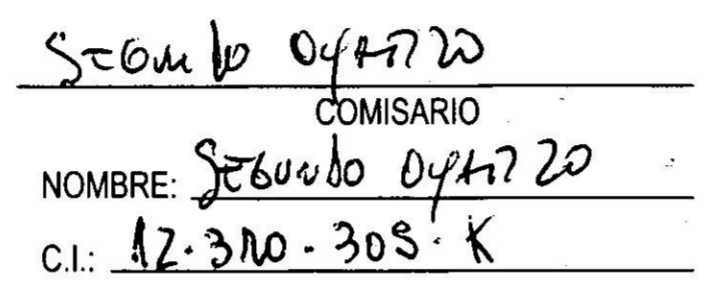 SEGUNDO OYARZO
COMISARIO
NOMBRE: SEGUNDO OYARZO
C.I.: 12.310.305-K